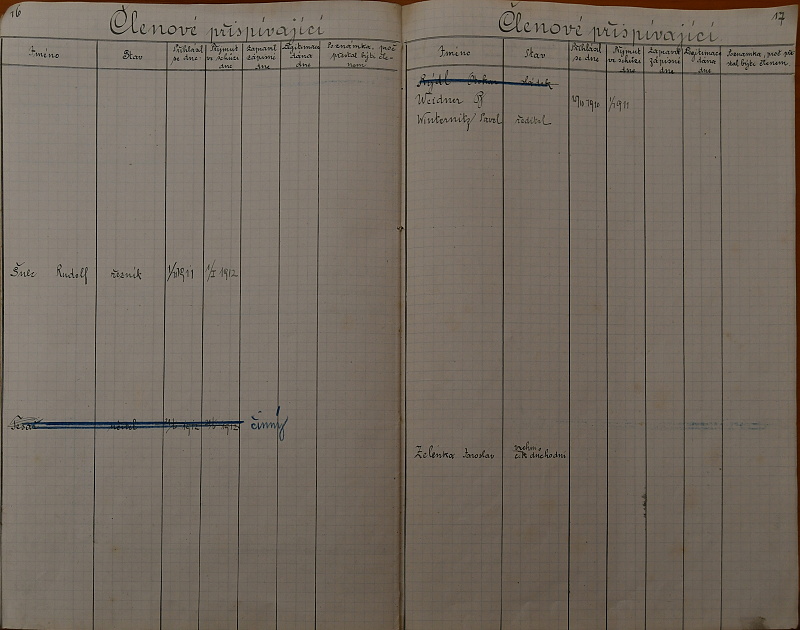 16
Členové přispívající
Jméno
Stav
Přihlásil se dne
Přijmut ve schůzi dne
Zapravil zápisné dne
Legitimace dána dne
Poznámka, proč přestal býti členem
Šulc Rudolf řezník 1911 1/I 1912
1912 1912 činný
17
Členové přispívající
Jméno
Stav
Přihlásil se dne
Přijmut ve schůzi dne
Zapravil zápisné dne
Legitimace dána dne
Poznámka, proč přestal býti členem
Weidner 1910 1911
Winternitz Pavel ředitel
Zelenka Jaroslav
c.k. důchodní